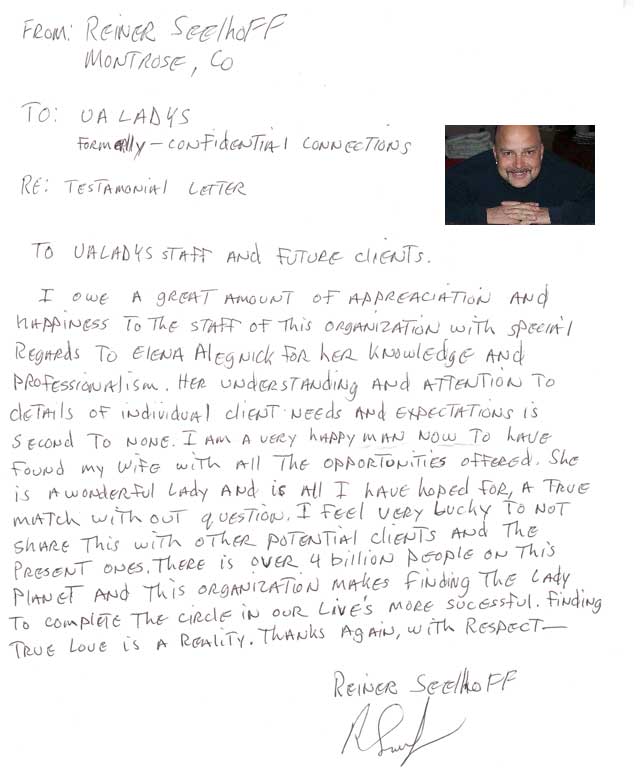 FROM: REINER SEELHOFF
MONTROSE, CO
TO: UA LADYS
FORMERLY - CONFIDENTIAL CONNECTIONS
RE: TESTAMONIAL LETTER
TO UALADYS STAFF AND FUTURE CLIENTS.
I OWE A GREAT AMOUNT OF APPREACIATION AND
HAPPINESS TO THE STAFF OF THIS ORGANIZATION WITH SPECIAL
REGARDS TO ELENA ALEGNICK FOR HER KNOWLEDGE AND
PROFESSIONALISM. HER UNDERSTANDING AND ATTENTION TO
DETAILS OF INDIVIDUAL CLIENT NEEDS AND EXPECTATIONS IS
SECOND TO NONE. I AM A VERY HAPPY MAN NOW TO HAVE
FOUND MY WIFE WITH ALL THE OPPORTUNITIES OFFERED. SHE
IS A WONDERFUL LADY AND IS ALL I HAVE HOPED FOR, A TRUE
MATCH WITH OUT QUESTION. I FEEL VERY LUCKY TO NOT
SHARE THIS WITH OTHER POTENTIAL CLIENTS AND THE
PRESENT ONES. THERE IS OVER 4 BILLION PEOPLE ON THIS
PLANET AND THIS ORGANIZATION MAKES FINDING THE LADY
TO COMPLETE THE CIRCLE IN OUR LIVE'S MORE SUCESSFUL. FINDING
TRUE LOVE IS A REALITY. THANKS AGAIN, WITH RESPECT—
REINER SEELHOFF